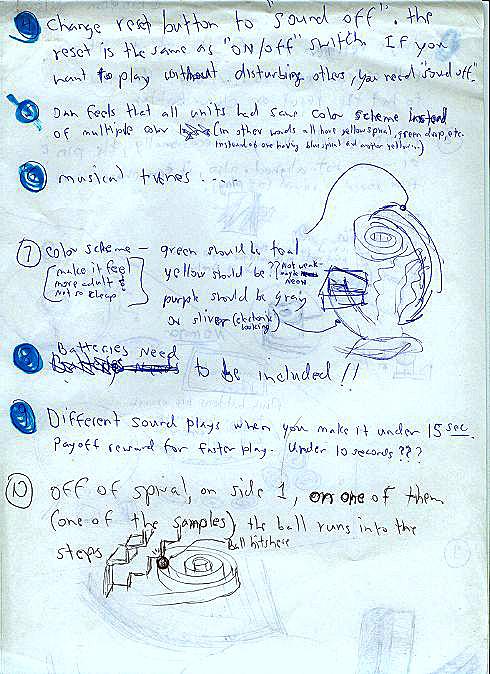 Change reset button to "sound off". the
reset is the same as "ON/off" switch. If you
want to play without disturbing others, you need "sound off".
Dan feels that all units had same color scheme instead
of multiple color (in other words all have yellow spiral, green drop, etc.
instead of one having blue spiral and another yellow...)
musical tunes ....
7 color scheme — green should be teal
[make it feel
more adult &
not so cheap]
yellow should be ?? (not weak-
maybe
NEON
purple should be gray
or sliver (electronic
looking)
Batteries Need
to be included!!
Different sound plays when you make it under 15 sec.
Payoff reward for faster play. Under 10 seconds???
10 off of spiral, on side 1, on one of them
(one of the samples) the ball runs into the
steps
Ball hits here